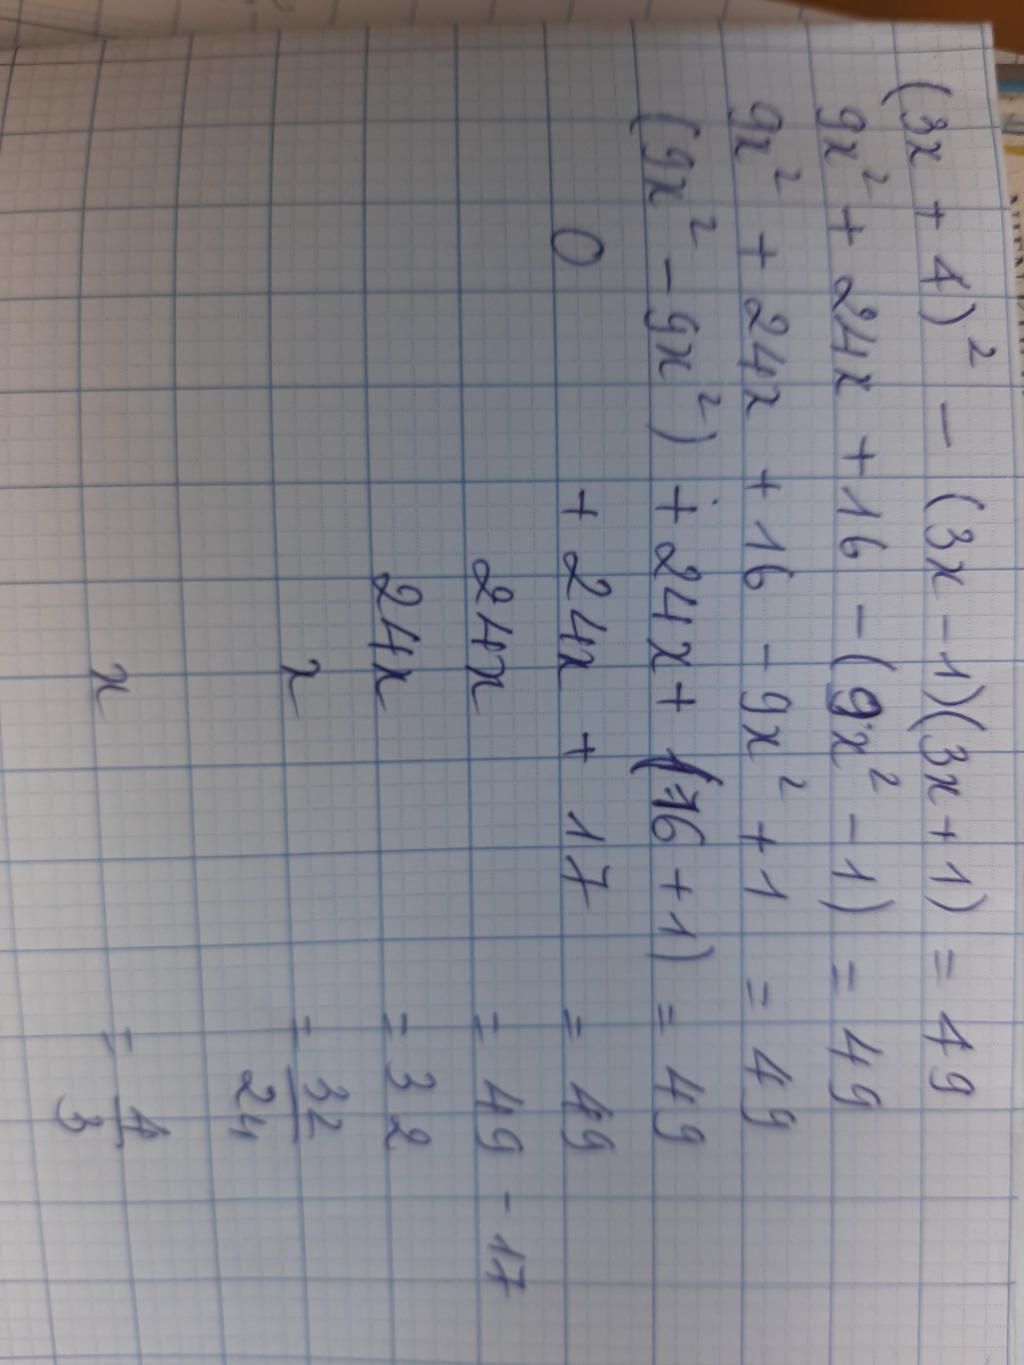 (3x + 4)² - (3x - 1)(3x + 1) = 49
9x² + 24x + 16 - (9x² - 1) = 49
9x² + 24x + 16 - 9x² + 1 = 49
(9x² - 9x²) + 24x + (16 + 1) = 49
0 + 24x + 17 = 49
24x = 49 - 17
24x = 32
x = 32/24
x = 4/3